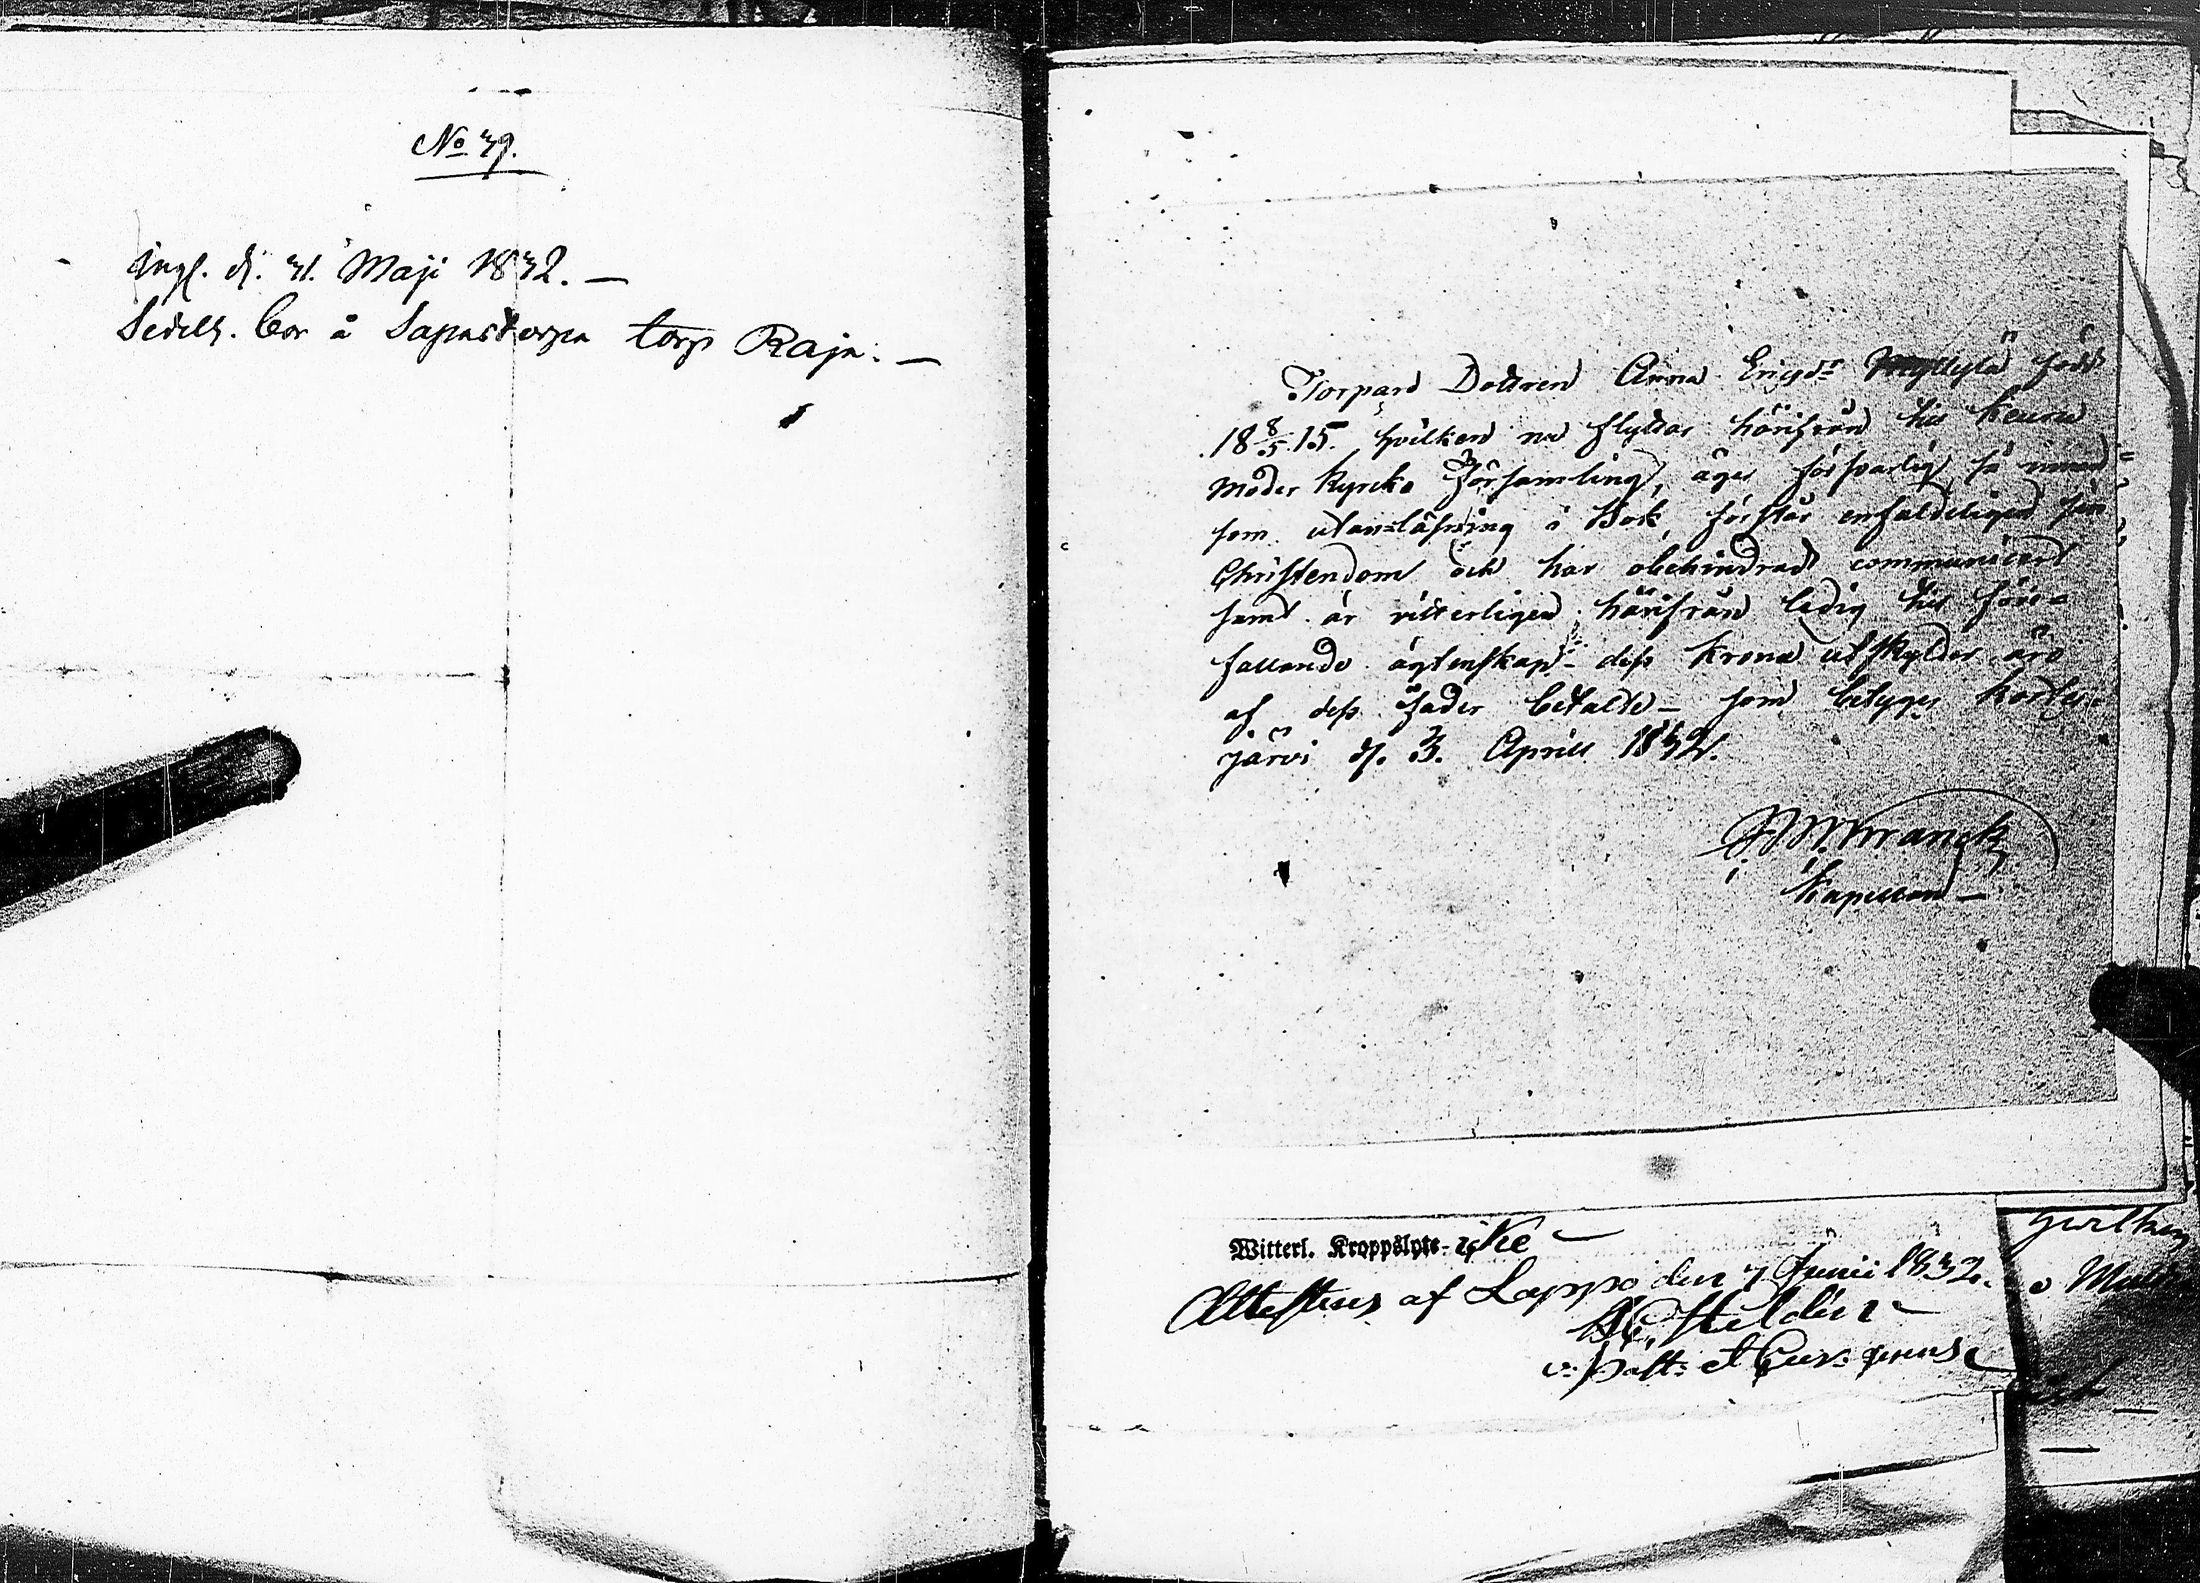 No 39.
Ingl. d. 31. Maji 1832. —
Sedelh. bor å torp Raja. —
Torpars Dottren Anna Ericsdr Myllylä född
18 8/5 15. hvilken nu flyttar härifrån till Keuru
Moder Kyrcko Församling, äger försvarlig så innan=
som utanläsning i Bok, förstår enfaldeligen sin
Christendom och har obehindrad communicert
samt är vitterligen härifrån ledig till före=
fallande ägtenskap – dess Krono utskylder äro
af dess Fader betalte – som betygas Kortes=
järvi d. 3. Aprill 1832.
Franck
Kapellan —
Witterl. Kroppslyte- icke —
Attesteres af Lappo den 7 Junii 1832.
Heldin
v: Past:
hvilken
o